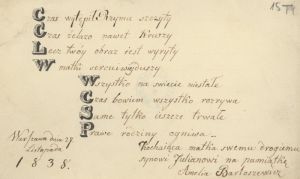 Czas wylepił Rzymu szczyty
Czas żelazo nawet kruszy
Lecz twój obraz jest wyryty
W matki sercu i w duszy
Wszystko na świecie niestałe
Czas bowiem wszystko rozrywa
Same tylko jeszcze trwałe
Prawe rodziny ogniwa
Warszawa dnia 28
Listopada
1838.
Kochająca matka swemu drogiemu
synowi Julianowi na pamiątkę
Amelia Bartoszewicz